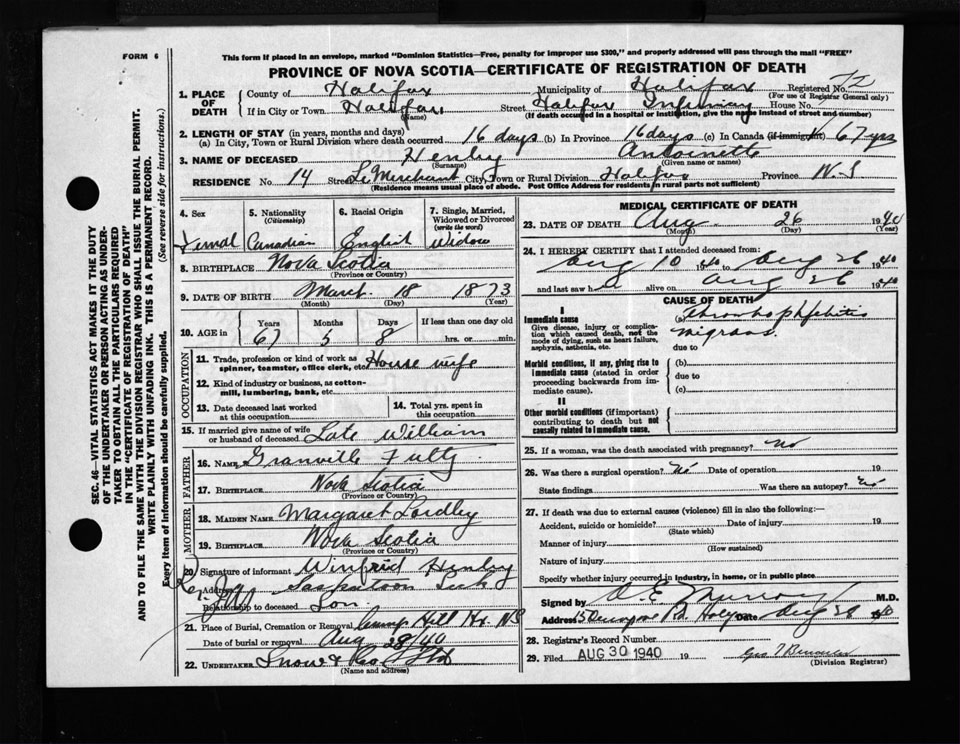 FORM 6
This form if placed in an envelope, marked "Dominion Statistics—Free, penalty for improper use $300," and properly addressed will pass through the mail "FREE"
PROVINCE OF NOVA SCOTIA—CERTIFICATE OF REGISTRATION OF DEATH
1. PLACE OF DEATH
County of Halifax Municipality of Halifax Registered No.
(For use of Registrar General only)
If in City or Town Halifax Street Halifax Infirmary House No.
(Name) (If death occurred in a hospital or institution, give the name instead of street and number)
2. LENGTH OF STAY (in years, months and days)
(a) In City, Town or Rural Division where death occurred 16 days (b) In Province 16 days (c) In Canada (if immigrant) 67 yrs
3. NAME OF DECEASED Henley Antoinette
(Surname) (Given name or names)
RESIDENCE No. 14 Street Le Merchant City, Town or Rural Division Halifax Province N.S
(Residence means usual place of abode. Post Office Address for residents in rural parts not sufficient)
4. Sex
Femal
5. Nationality
(Citizenship)
Canadian
6. Racial Origin
English
7. Single, Married, Widowed or Divorced
(write the word)
Widow
8. BIRTHPLACE Nova Scotia
(Province or Country)
9. DATE OF BIRTH March 18 1873
(Month) (Day) (Year)
10. AGE in
Years Months Days If less than one day old
67 5 8 hrs. or min.
OCCUPATION
11. Trade, profession or kind of work as spinner, teamster, office clerk, etc. House wife
12. Kind of industry or business, as cotton-mill, lumbering, bank, etc.
13. Date deceased last worked at this occupation
14. Total yrs. spent in this occupation
15. If married give name of wife or husband of deceased Late William
FATHER
16. NAME Granville Fultz
17. BIRTHPLACE Nova Scotia
(Province or Country)
MOTHER
18. MAIDEN NAME Margaret Lordley
19. BIRTHPLACE Nova Scotia
(Province or Country)
20. Signature of informant Winfrid Henley
Address Saskatoon Sask
Relationship to deceased Son
21. Place of Burial, Cremation or Removal Camp Hill Hx. NS
Date of burial or removal Aug 28/40
22. UNDERTAKER Snow & Co Ltd
(Name and address)
MEDICAL CERTIFICATE OF DEATH
23. DATE OF DEATH Aug 26 1940
(Month) (Day) (Year)
24. I HEREBY CERTIFY that I attended deceased from:
Aug 10 1940 to Aug 26 1940
and last saw h alive on Aug 26 1940
CAUSE OF DEATH
I
Immediate cause
Give disease, injury or complication which caused death, not the mode of dying, such as heart failure, asphyxia, asthenia, etc.
(a) Thrombophlebitis
migrans
due to
Morbid conditions, if any, giving rise to immediate cause (stated in order proceeding backwards from immediate cause).
(b)
due to
(c)
II
Other morbid conditions (if important) contributing to death but not causally related to immediate cause.
25. If a woman, was the death associated with pregnancy? No
26. Was there a surgical operation? No Date of operation 19
State findings Was there an autopsy? No
27. If death was due to external causes (violence) fill in also the following:—
Accident, suicide or homicide? Date of injury 19
(State which)
Manner of injury
(How sustained)
Nature of injury
Specify whether injury occurred in industry, in home, or in public place
Signed by E Murray M.D.
Address Date Aug 28 40
28. Registrar's Record Number
29. Filed AUG 30 1940 19
(Division Registrar)
SEC. 46—VITAL STATISTICS ACT MAKES IT THE DUTY
OF THE UNDERTAKER OR PERSON ACTING AS UNDER-
TAKER TO OBTAIN ALL THE PARTICULARS REQUIRED
IN THE "CERTIFICATE OF REGISTRATION OF DEATH"
AND TO FILE THE SAME WITH THE DIVISION REGISTRAR WHO SHALL ISSUE THE BURIAL PERMIT.
WRITE PLAINLY WITH UNFADING INK. THIS IS A PERMANENT RECORD.
Every item of information should be carefully supplied. (See reverse side for instructions.)